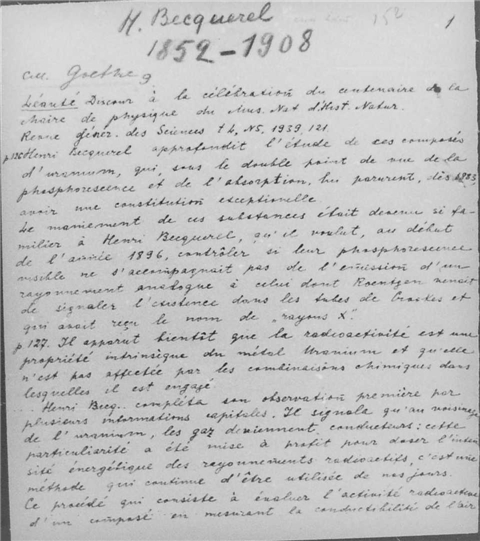 H. Becquerel
152
1
1852-1908
см. Goethe 9
Léauté Discour à la célébration du centenaire de la
chaire de physique du Mus. Nat d'Hist. Natur.
Revue génér. des Sciences t 4, N5, 1939, 121.
p.126 Henri Becquerel approfondit l'étude de ces composés
d'uranium, qui, sous le double point de vue de la
phosphorescence et de l'absorption, lui parurent, dès 1883,
avoir une constitution exceptionelle
Le maniement de ces substances était devenu si fa-
milier à Henri Becquerel, qu'il voulut, au début
de l'année 1896, contrôler si leur phosphorescence
visible ne s'accompagnait pas de l'émission d'un
rayonnement analogue à celui dont Roentgen venait
de signaler l'existence dans les tubes de Crookes et
qui avait reçu le nom de „rayons X".
p.127. Il apparut bientôt que la radioactivité est une
propriété intrinsique du métal Uranium et qu'elle
n'est pas affectée par les combinaisons chimiques dans
lesquelles il est engagé
Henri Becq. compléta son observation première par
plusieurs informations capitales. Il signala qu'au voisinage
de l'uranium, les gaz deviennent conducteurs: cette
particularité a été mise à profit pour doser l'inten
sité énergétique des rayonnements radioactifs, c'est une
méthode qui continue d'être utilisée de nos jours.
Ce procédé qui consiste à évaluer l'activité radioactive
d'un composé en mesurant la conductibilité de l'air